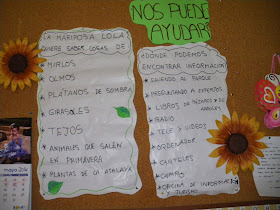 NOS PUEDE
AYUDAR?
LA MARIPOSA LOLA
QUIERE SABER COSAS DE
MIRLOS
OLMOS
PLÁTANOS DE SOMBRA
GIRASOLES
TEJOS
ANIMALES QUE SALEN
EN PRIMAVERA
PLANTAS DE LA ATALAYA
¿DÓNDE PODEMOS
ENCONTRAR INFORMACIÓN?
SALIENDO AL PARQUE
PREGUNTANDO A EXPERTOS
LIBROS DE PÁJAROS Y DE
ÁRBOLES
RADIO
TELE Y VIDEOS
ORDENADOR
CARTELES
CAMPO
OFICINA DE INFORMACIÓN
Y TURISMO
mayo